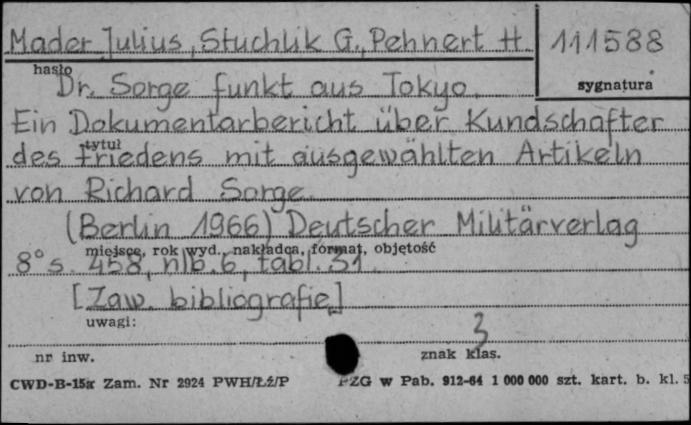 Mader Julius, Stuchlik G., Pehnert H.
111588
hasło
sygnatura
Dr. Sorge funkt aus Tokyo.
Ein Dokumentarbericht über Kundschafter
tytuł
des Friedens mit ausgewählten Artikeln
von Richard Sorge.
(Berlin 1966) Deutscher Militärverlag
miejsce, rok wyd., nakładca, format, objętość
8° s. 458, nlb. 6, tabl. 31.
[Zaw. bibliografię]
uwagi:
3
nr inw.
znak klas.
CWD-B-15a Zam. Nr 2924 PWH/Łź/P
PZG w Pab. 912-64 1 000 000 szt. kart. b. kl. 5